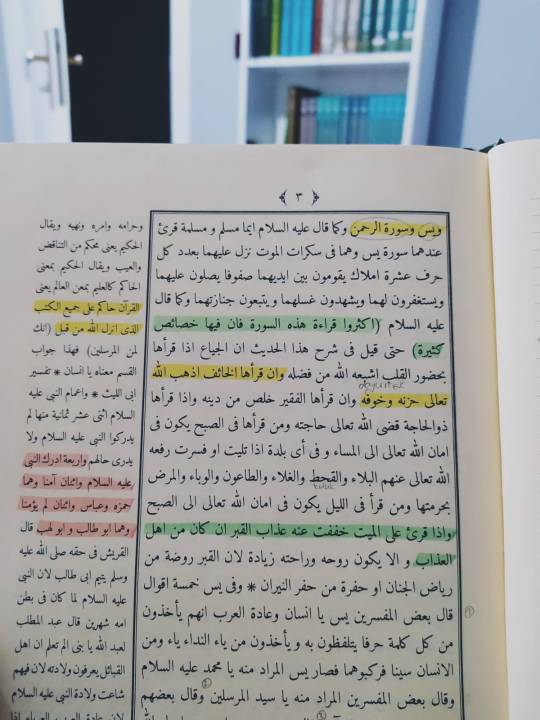 ﴿ ٣ ﴾
ويس وسورة الرحمن وكما قال عليه السلام ايما مسلم و مسلمة قرئ
عندهما سورة يس وهما فى سكرات الموت نزل عليهما بعدد كل
حرف عشرة املاك يقومون بين ايديهما صفوفا يصلون عليهما
ويستغفرون لهما ويشهدون غسلهما ويتبعون جنازتهما وكما قال
عليه السلام (اكثروا قراءة هذه السورة فان فيها خصائص
كثيرة) حتى قيل فى شرح هذا الحديث ان الجياع اذا قرأها
بحضور القلب اشبعه الله من فضله وان قرأها الخائف اذهب الله
تعالى حزنه وخوفه وان قرأها الفقير خلص من دينه واذا قرأها
ذوالحاجة قضى الله تعالى حاجته ومن قرأها فى الصبح يكون فى
امان الله تعالى الى المساء و فى أى بلدة اذا تليت او فسرت رفعه
الله تعالى عنهم البلاء والقحط والغلاء والطاعون والوباء والمرض
بحرمتها ومن قرأ فى الليل يكون فى امان الله تعالى الى الصبح
واذا قرئ على الميت خففت عنه عذاب القبر ان كان من اهل
العذاب و الا يكون روحه وراحته زيادة لان القبر روضة من
رياض الجنان او حفرة من حفر النيران * وفى يس خمسة اقوال
قال بعض المفسرين يس يا انسان وعادة العرب انهم يأخذون
من كل كلمة حرفا يتلفظون به و يأخذون من ياء النداء ياء ومن
الانسان سينا فركبوهما فصار يس المراد منه يا محمد عليه السلام
وقال بعض المفسرين المراد منه يا سيد المرسلين وقال بعضهم
وحرامه وامره ونهيه ويقال
الحكيم يعنى محكم من التناقض
والعيب ويقال الحكيم بمعنى
الحاكم كالعليم بمعنى العالم يعنى
القرآن حاكم على جميع الكتب
الذى انزل الله من قبل (انك
لمن المرسلين) فهذا جواب
القسم معناه يا انسان * تفسير
ابى الليث * واعمام النبى عليه
السلام اثنى عشر ثمانية منها لم
يدركوا النبى عليه السلام ولا
يدرى حالهم واربعة ادرك النبى
عليه السلام واثنان آمنا وهما
حمزه وعباس واثنان لم يؤمنا
وهما ابو طالب و ابو لهب قال
القريش فى حقه صلى الله عليه
وسلم يتيم ابى طالب لان النبى
عليه السلام لما كان فى بطن
امه شهرين قال عبد المطلب
لعبد الله يا بنى الم تعلم ان اهل
القبائل يعرفون ولادته لان فيهم
شاعت ولادة النبى عليه السلام